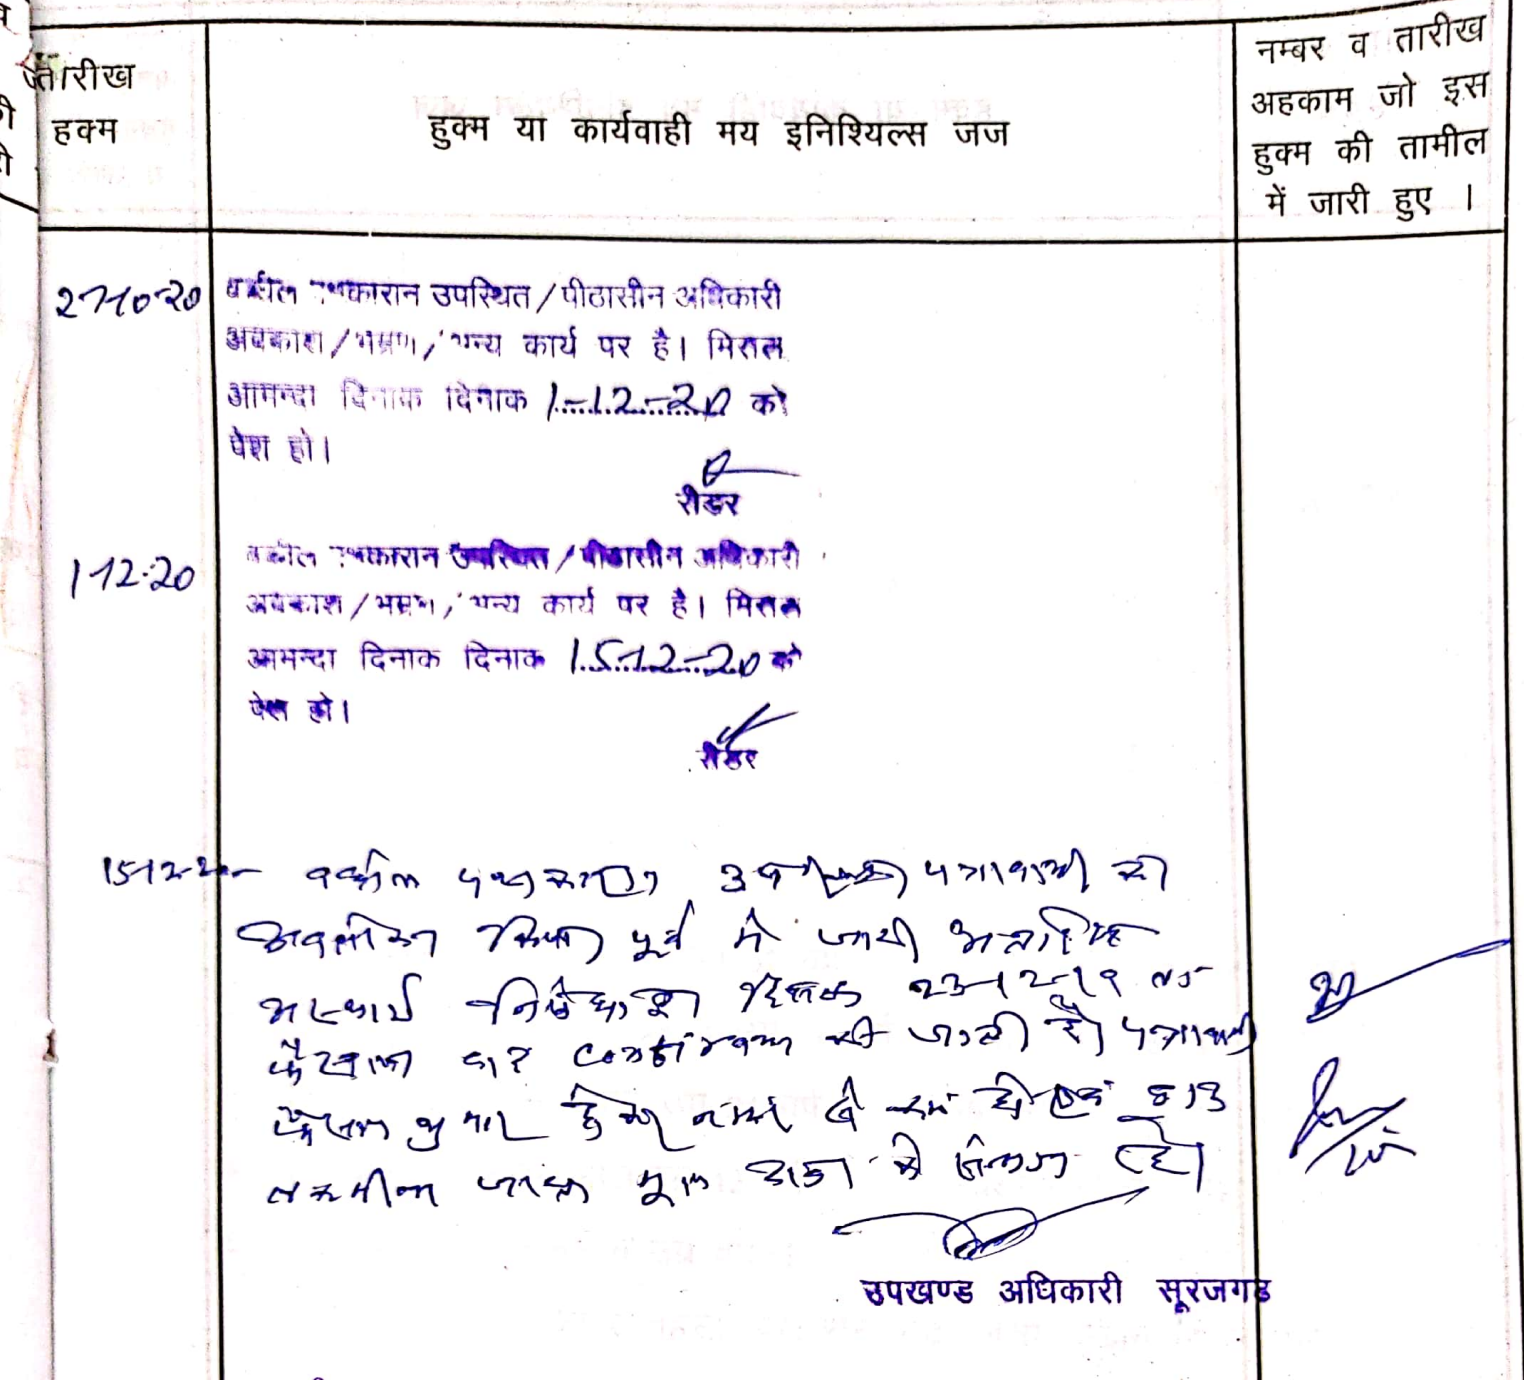 तारीख
हुक्म या कार्यवाही मय इनिश्यिल्स जज
नम्बर व तारीख
हक्म
अहकाम जो इस
हुक्म की तामील
में जारी हुए ।
27-10-20
वकील पक्षकारान उपस्थित/पीठासीन अधिकारी
अवकाश/भम्रण/अन्य कार्य पर है। मिसल
आमन्दा दिनाक दिनाक 1-12-20 को
पेश हो।
रीडर
1-12-20
वकील पक्षकारान उपस्थित/पीठासीन अधिकारी
अवकाश/भम्रण/अन्य कार्य पर है। मिसल
आमन्दा दिनाक दिनाक 15-12-20 को
पेश हो।
रीडर
15-12-20 वकील पक्षकारान पत्रावली का
अवलोकन किया पूर्व में जारी
अस्थाई निषेधाज्ञा दिनांक 23-12-19
की जाती है। पत्रावली
फैसल शुमार होकर नम्बर से कम हो
मूल
उपखण्ड अधिकारी सूरजगढ